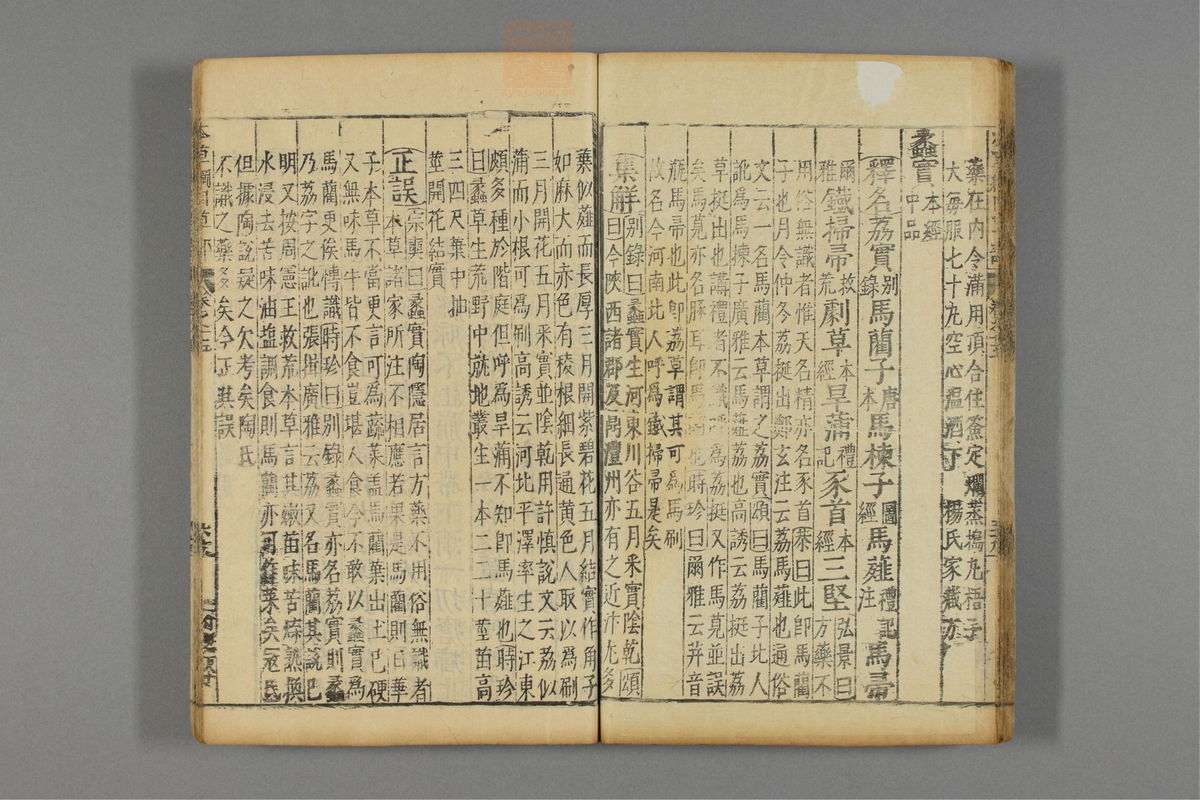 藥在内令滿用頂合住簽定爛蒸搗丸梧子
大每服七十丸空心温酒下楊氏家藏方
蠡實本經中品
釋名荔實别録馬藺子唐本馬楝子圖經馬薤禮記注馬帚
爾雅鐵掃帚救荒劇草本經旱蒲禮記豕首本經三堅弘景曰方藥不
用俗無識者惟天名精亦名豕首恭曰此即馬藺
子也月令仲冬荔挺出鄭玄注云荔馬薤也通俗
文云一名馬藺本草謂之荔實頌曰馬藺子北人
訛爲馬楝子廣雅云馬薤荔也高誘云荔挺出荔
草挺出也講禮者不識呼爲荔挺又作馬莧並誤
矣馬莧亦名豚耳即馬齒也時珍曰爾雅云荓音
瓶馬帚也此即荔草謂其可爲馬刷
故名今河南北人呼爲鐵掃帚是矣
集解别録曰蠡實生河東川谷五月采實陰乾頌
曰今陝西諸郡及鼎澧州亦有之近汴尤多
葉似薤而長厚三月開紫碧花五月結實作角子
如麻大而赤色有稜根細長通黄色人取以爲刷
三月開花五月采實並陰乾用許慎說文云荔似
蒲而小根可爲刷高誘云河北平澤率生之江東
頗多種於階庭但呼爲旱蒲不知即馬薤也時珍
曰蠡草生荒野中就地叢生一本二三十莖苗高
三四尺葉中抽
莖開花結實
正誤宗奭曰蠡實陶隱居言方藥不用俗無識者
本草諸家所注不相應若果是馬藺則日華
子本草不當更言可爲蔬菜蓋馬藺葉出土已硬
又無味馬牛皆不食豈堪人食今不敢以蠡實爲
馬藺更俟博識時珍曰别録蠡實亦名荔實則蠡
乃荔字之訛也張揖廣雅云荔又名馬藺其說已
明又按周憲王救荒本草言其嫩苗味苦煠熟換
水浸去苦味油鹽調食則馬藺亦可作菜矣寇氏
但據陶說疑之欠考矣陶氏
不識之藥多矣今正其誤